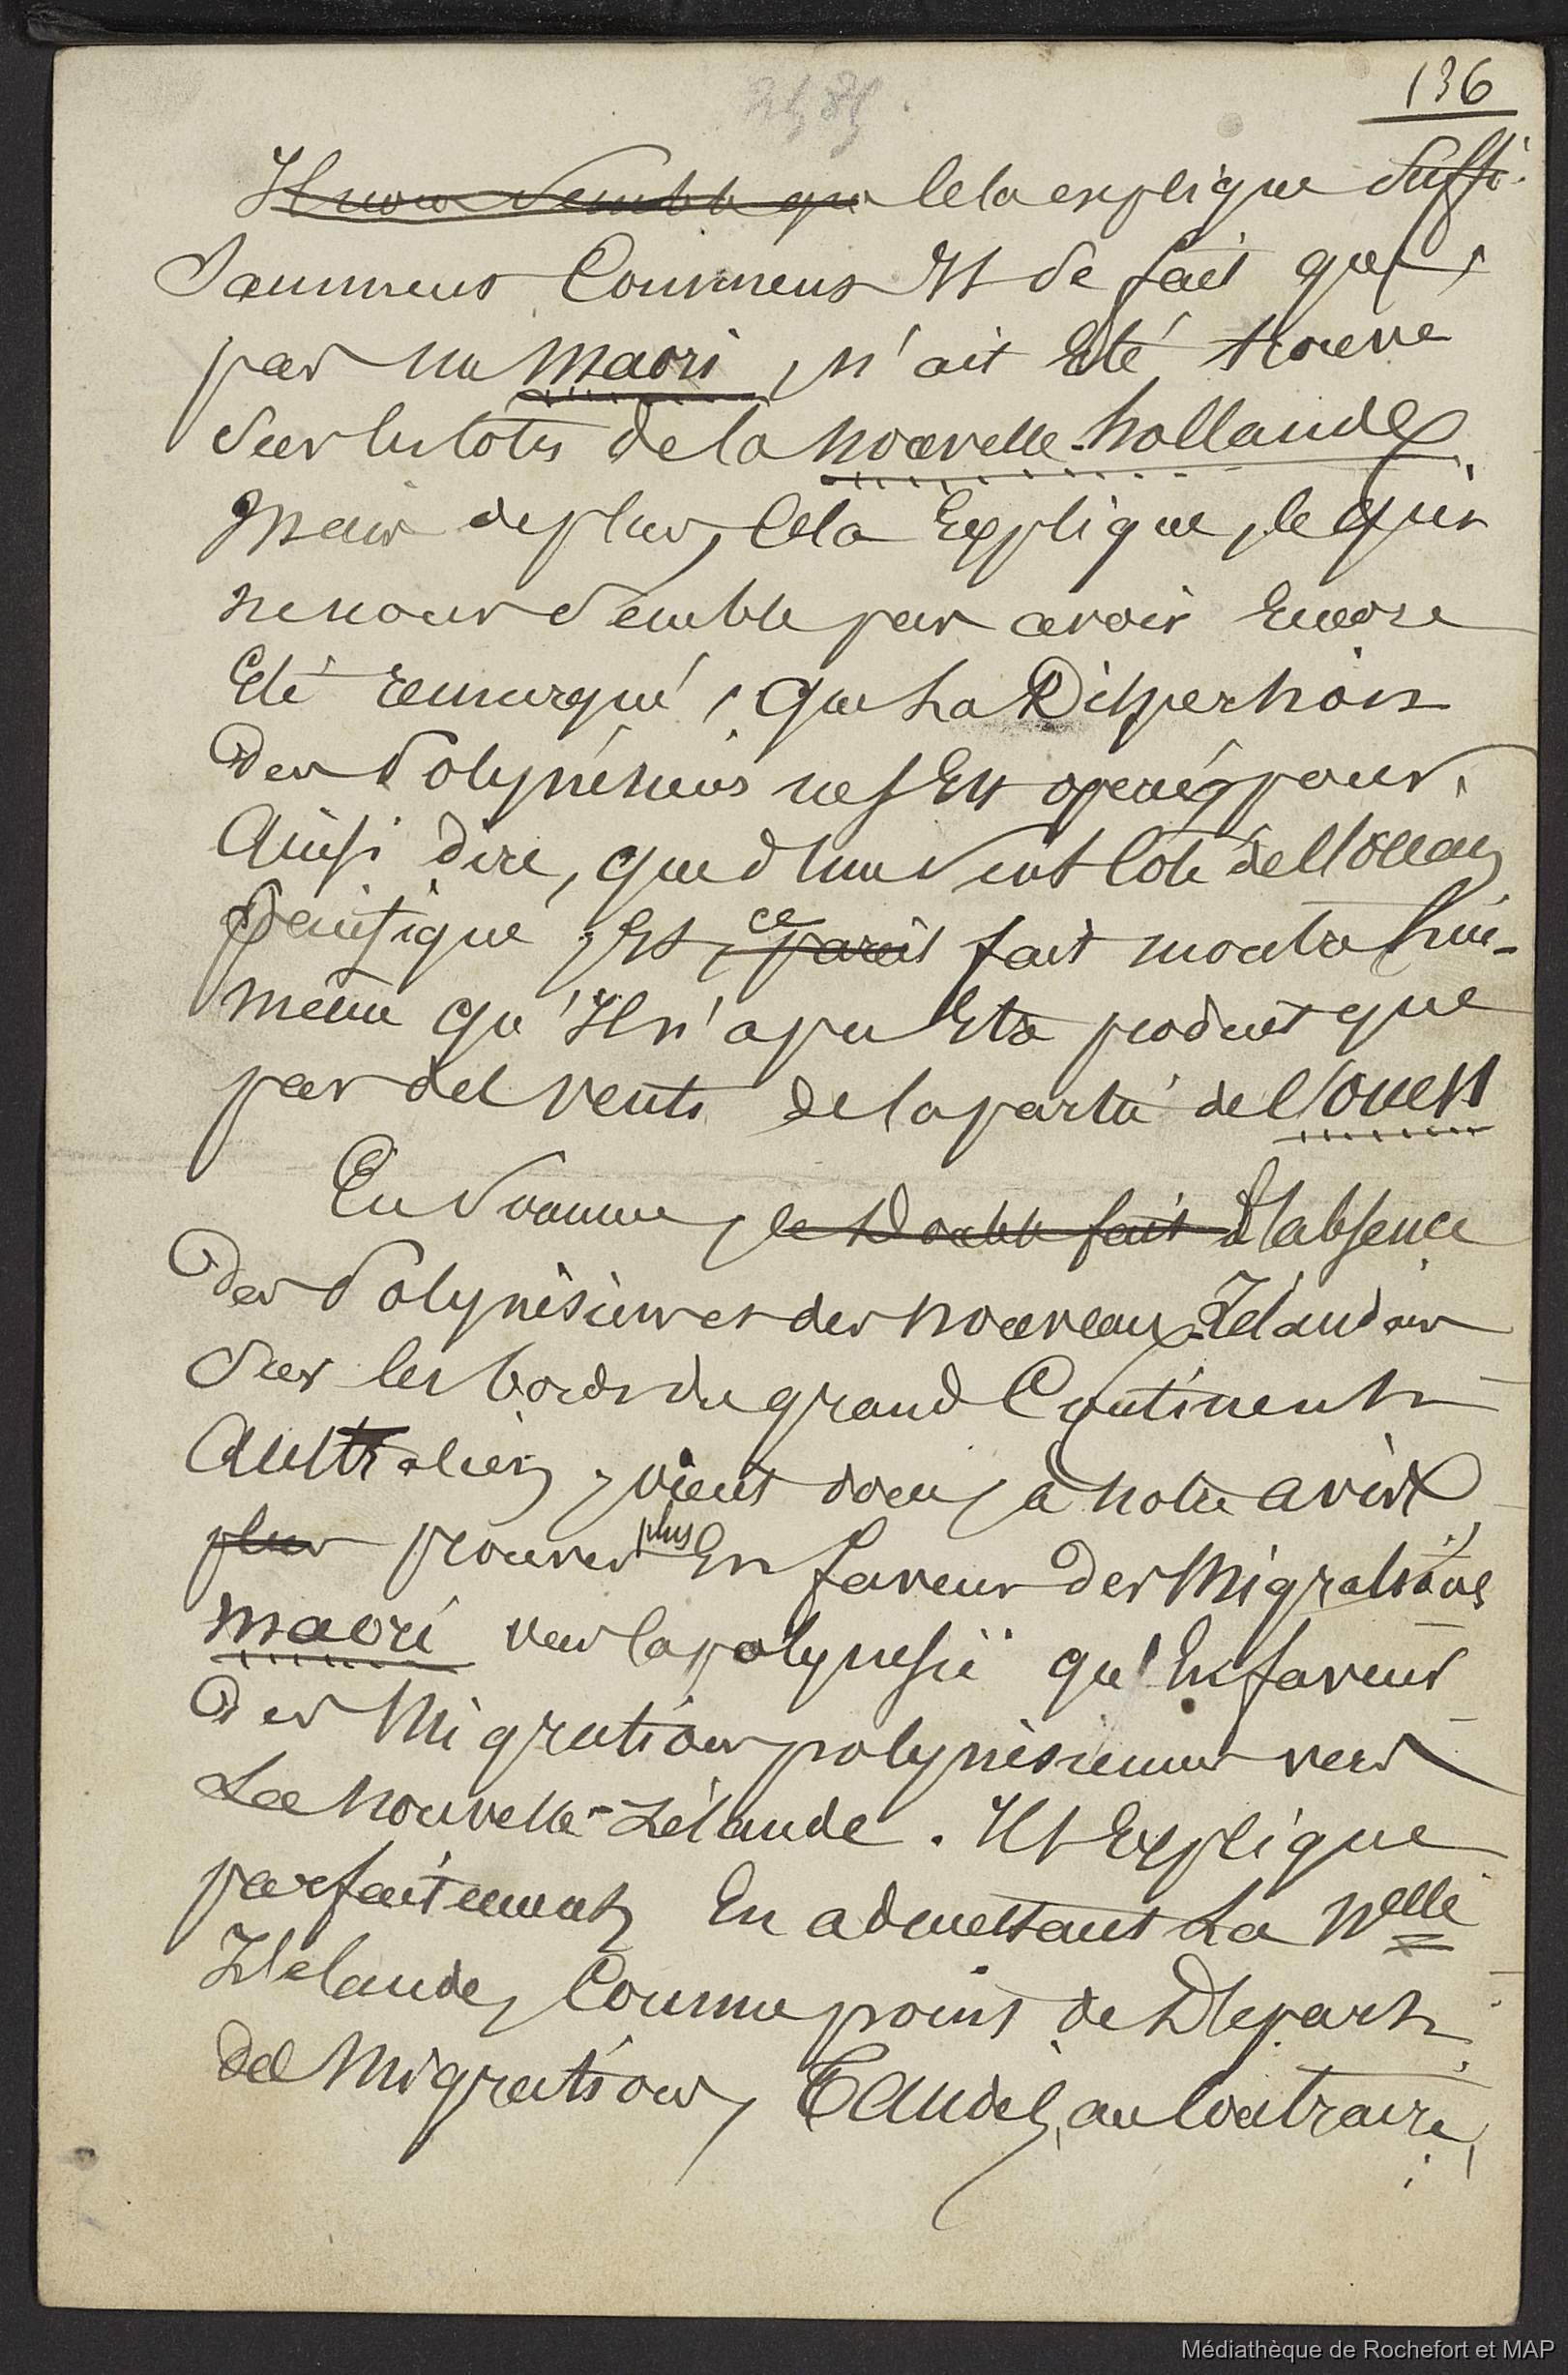 136
Il nous semble que Cela explique suffi-
samment comment Il se fait que,
pas un maori, n'ait Eté trouvé
sur les côtes de la nouvelle-hollande
mais de plus, Cela Explique, ce qui
ne nous semble pas avoir Encore
Eté remarqué, que La Dispersion
Des Polynésiens ne s'Est opérée, pour
Ainsi dire, que d'un seul côté de l'Océan
Pacifique, Et, ce pareil fait montre Lui-
même qu'Il n'a pu Etre produit que
par des vents de la partie de l'ouest
En somme, le Double fait de l'absence
Des Polynésiens et des nouveaux-Zélandais
Sur les bords du grand Continent
Australien, vient donc, à notre avis
plus prouver plus En faveur Des Migrations
maori vers la polynesie qu'En faveur
Des Migrations polynésiennes vers
La nouvelle-Zélande. Il s'Explique
parfaitement En admettant La Nelle
Zélande, Comme point de Départ
des Migrations, Tandis, au Contraire,
Médiathèque de Rochefort et MAP